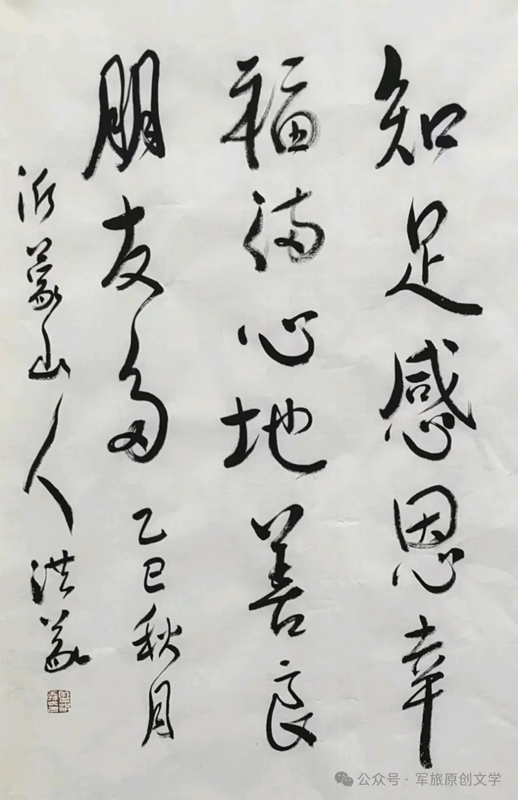 知足感恩幸
福满心地善良
朋友多
乙巳秋月
沂蒙山人洪义
公众号·军旅原创文学